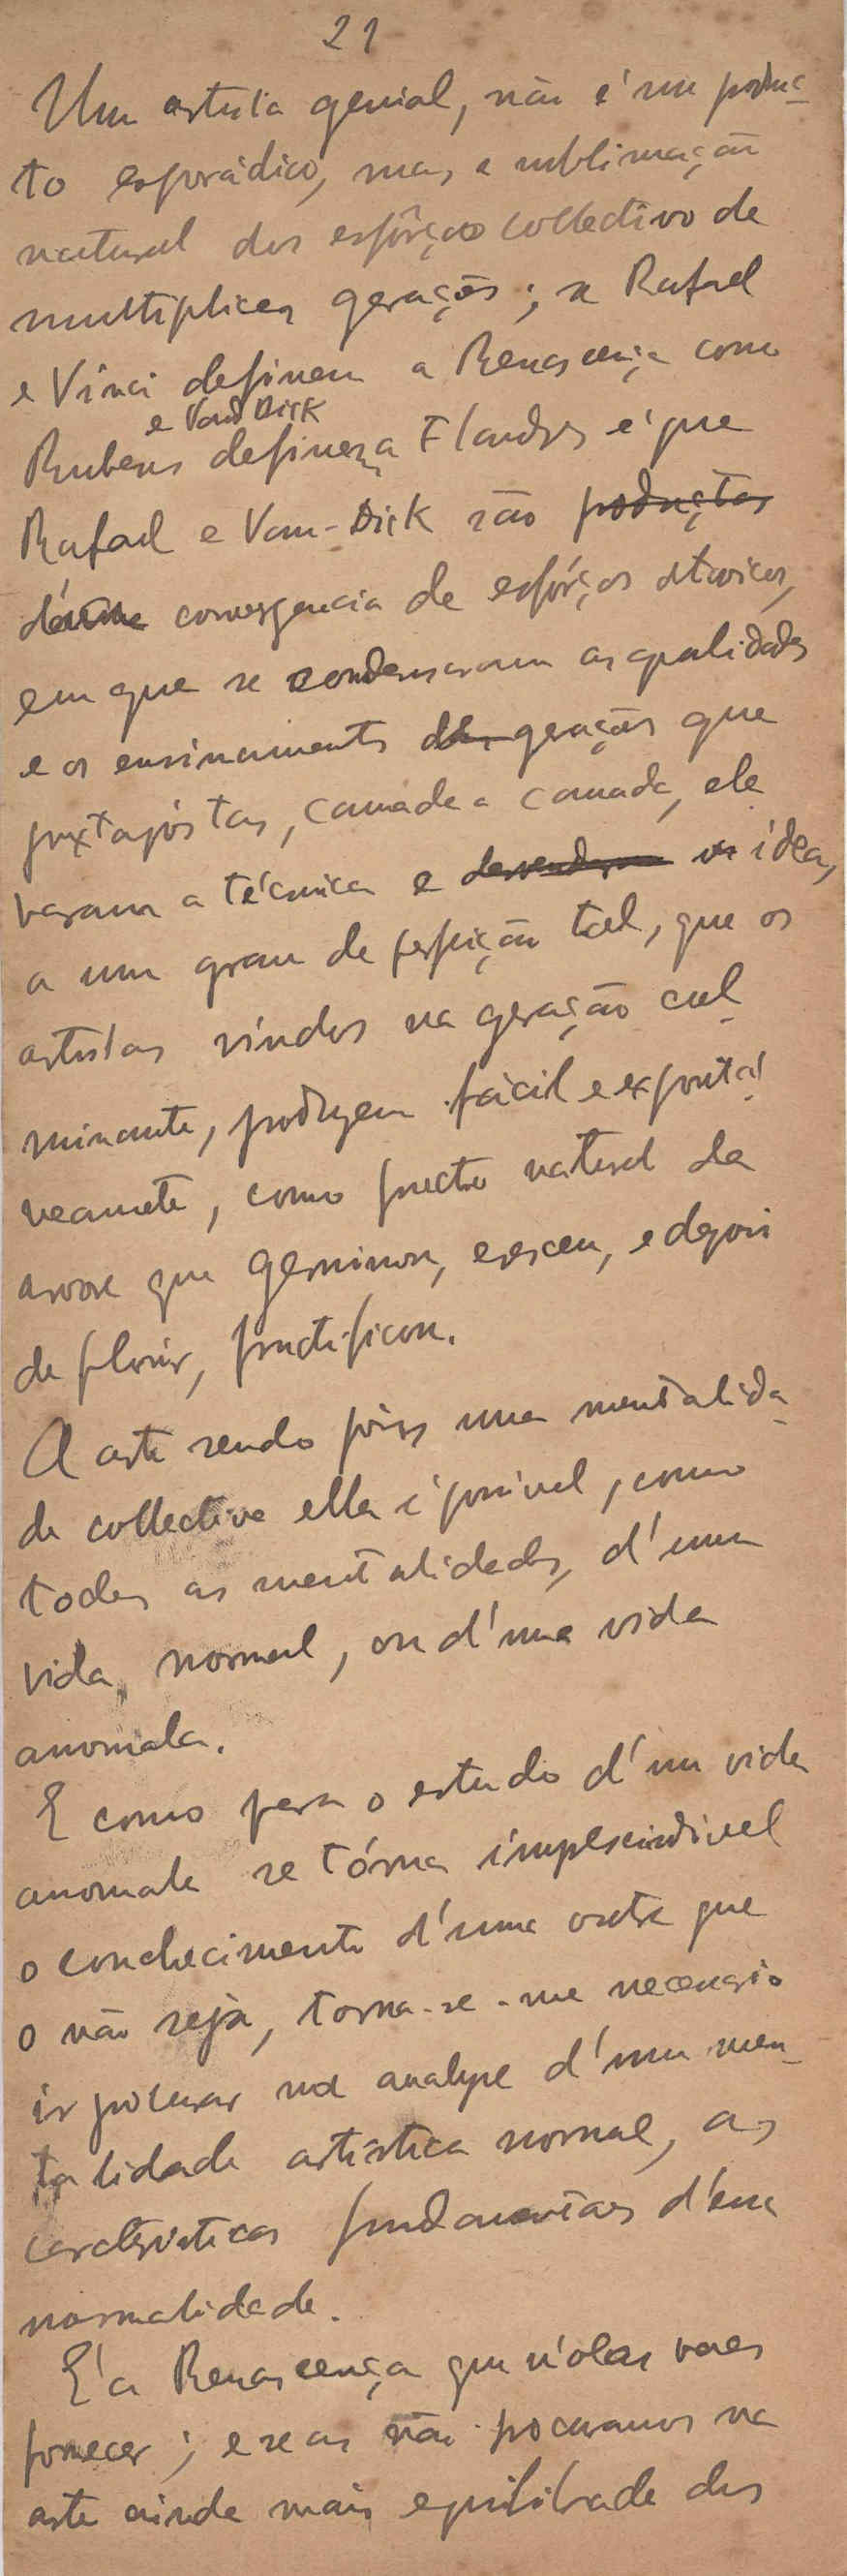 21
Um artista genial, não é um produc-
to esporádico, mas a sublimação
natural dos esfôrços collectivo de
multiplices gerações; se Rafael
e Vinci definem a Renascença como
e Vand Dick
Rubens definem a Flandres é que
Rafael e Vam-Dick são productos
d'uma convergencia de esfórços atavicos,
em que se condensaram as qualidades
e os ensinamentos de gerações que
juxtapóstas, camada a camada, ele
varam a técnica e a idea,
a um grau de perfeição tal, que os
artistas vindos na geração cul-
minante, produzem fácil e expontá-
neamente, como fructo natural da
arvore que germinou, cresceu, e depois
de florir, fructificou.
A arte sendo pois uma mentalida-
de collectiva ella é possivel, como
todas as mentalidades, d'uma
vida normal, ou d'uma vida
anomala.
E como para o estudo d'uma vida
anomala se tórna impescindivel
o conhecimento d'uma outra que
o não seja, torna-se-me necessario
ir procurar na analyse d'uma men-
talidade artística normal, as
caracteristicas fundamentaes d'essa
normalidade.
E' a Renascença que n'olas vaes
fornecer; e se as não procuramos na
arte ainda mais equilibrada dos